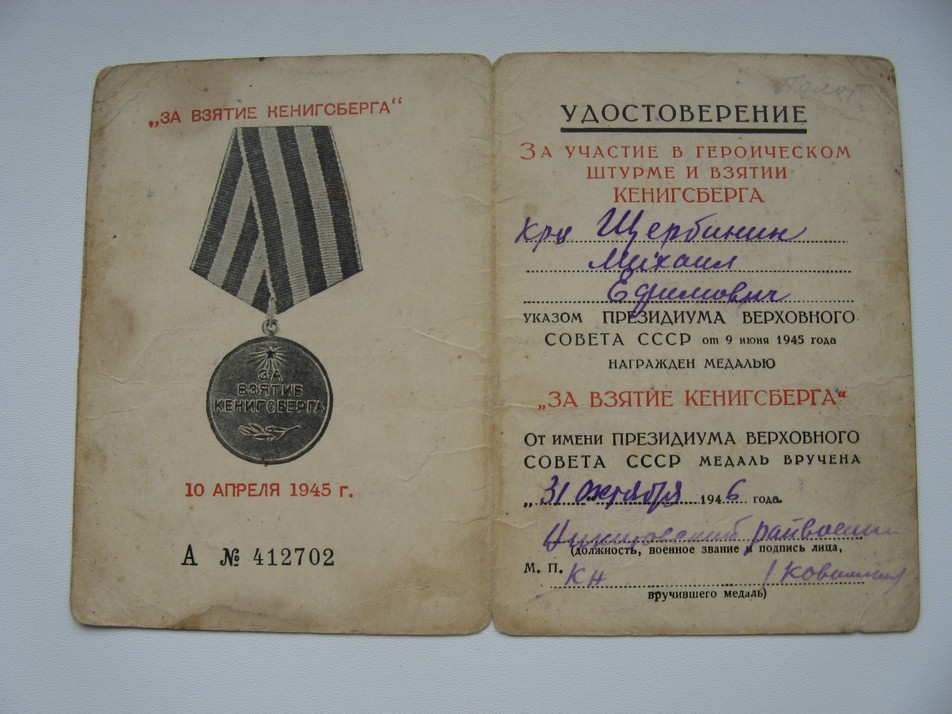 „ЗА ВЗЯТИЕ КЕНИГСБЕРГА“
ЗА
ВЗЯТИЕ
КЕНИГСБЕРГА
10 АПРЕЛЯ 1945 г.
А № 412702
УДОСТОВЕРЕНИЕ
ЗА УЧАСТИЕ В ГЕРОИЧЕСКОМ
ШТУРМЕ И ВЗЯТИИ
КЕНИГСБЕРГА
Крц Щербинин
Михаил
Ефимович
УКАЗОМ ПРЕЗИДИУМА ВЕРХОВНОГО
СОВЕТА СССР от 9 июня 1945 года
НАГРАЖДЕН МЕДАЛЬЮ
„ЗА ВЗЯТИЕ КЕНИГСБЕРГА“
ОТ ИМЕНИ ПРЕЗИДИУМА ВЕРХОВНОГО
СОВЕТА СССР МЕДАЛЬ ВРУЧЕНА
„31 октября 1946 года.
райвоен
(должность, военное звание и подпись лица,
М. П.
вручившего медаль)